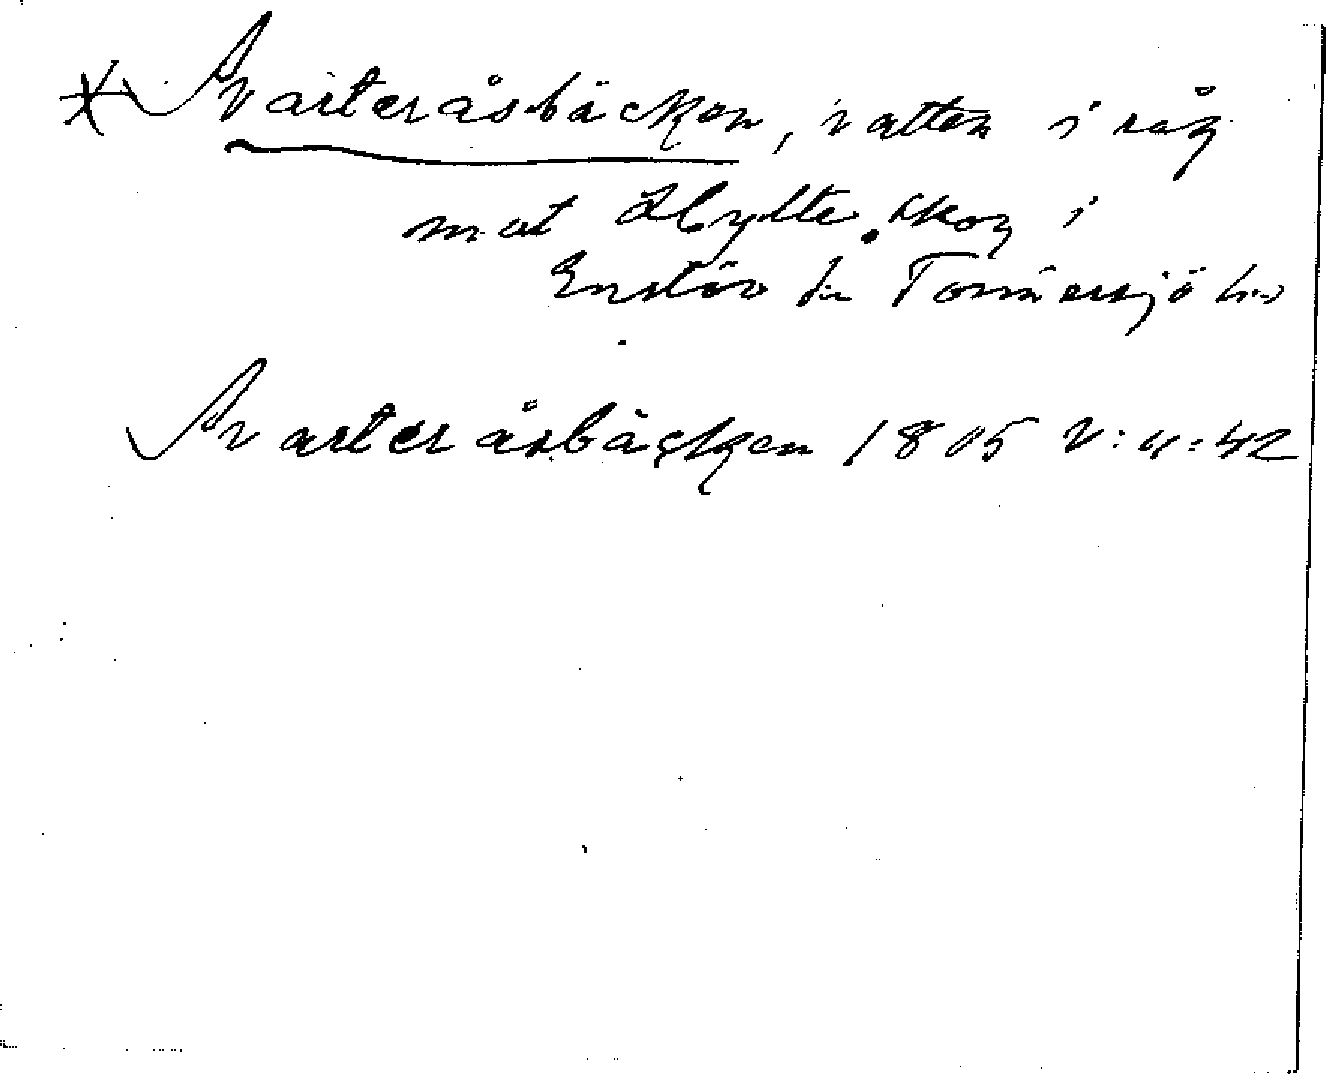 * Svarteråsbäcken, vatten i råg
mot Hylte skog i
Enslöv sn Tönnersjö hd
Svarteråsbäcken 1805 V:4:42